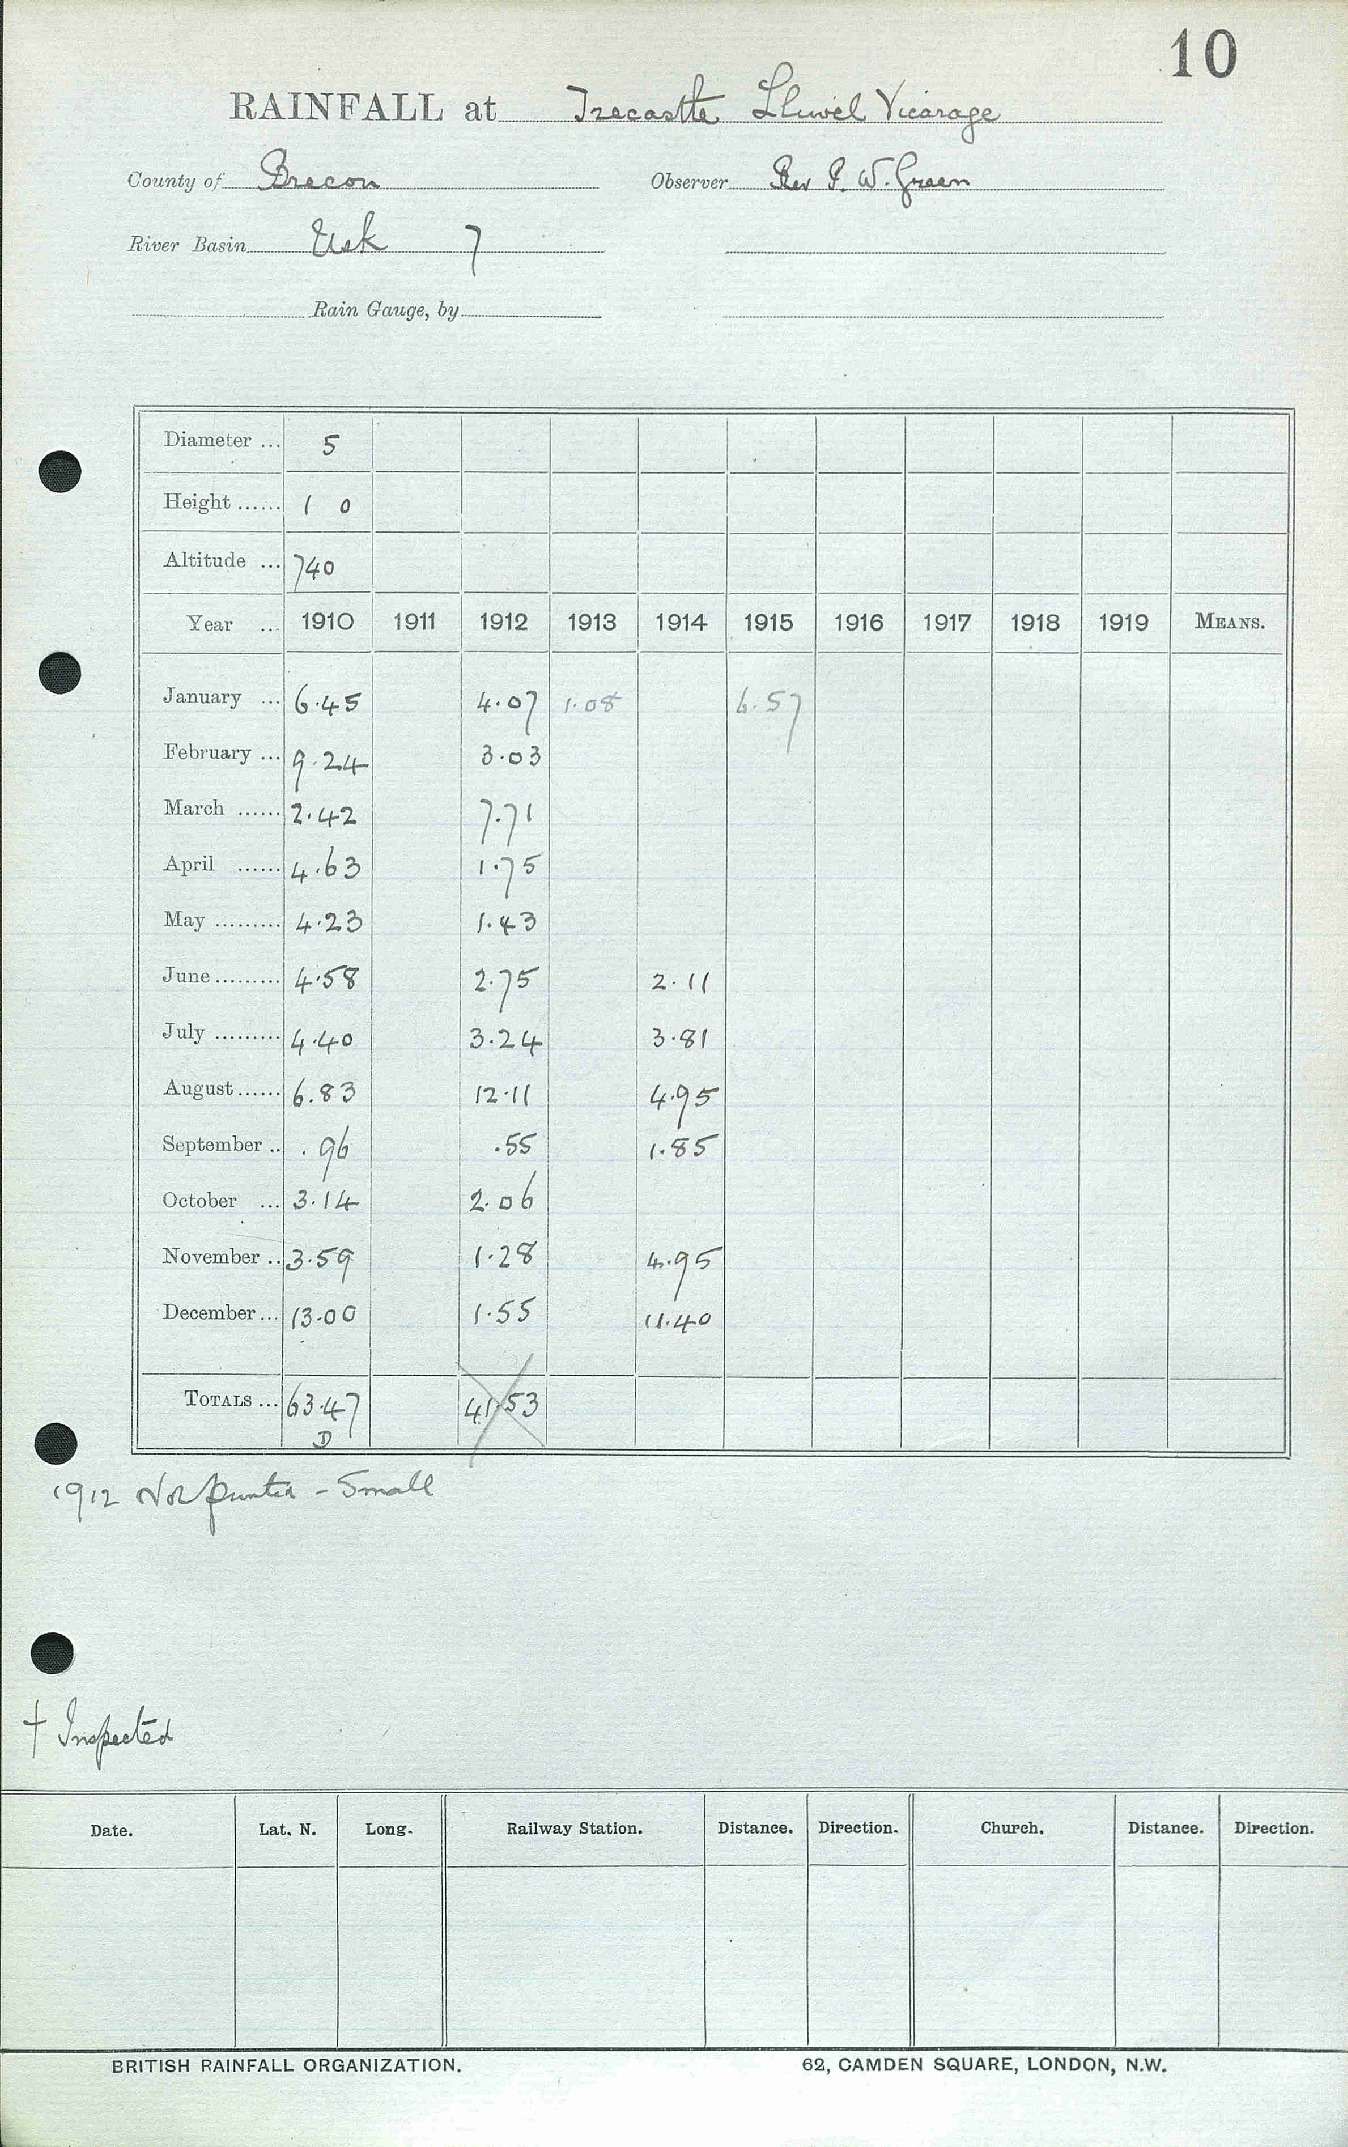 10
RAINFALL at Trecastle Llywel Vicarage
County of Brecon Observer Rev P. W. Green
River Basin Usk 7
Rain Gauge, by
Diameter ... 5
Height ...... 1 0
Altitude ... 740
Year ... 1910 1911 1912 1913 1914 1915 1916 1917 1918 1919 MEANS.
January ... 6.45 4.07 1.08 6.57
February ... 9.24 3.03
March ...... 2.42 7.71
April ...... 4.63 1.75
May ......... 4.23 1.43
June ......... 4.58 2.75 2.11
July ......... 4.40 3.24 3.81
August ...... 6.83 12.11 4.95
September .. .96 .55 1.85
October ... 3.14 2.06
November .. 3.59 1.28 4.95
December ... 13.00 1.55 11.40
TOTALS ... 63.47 41.53
D
1912 Not printed - Small
† Inspected
Date. Lat. N. Long. Railway Station. Distance. Direction. Church. Distance. Direction.
BRITISH RAINFALL ORGANIZATION. 62, CAMDEN SQUARE, LONDON, N.W.